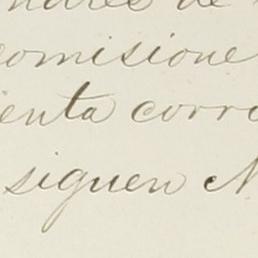 de
comisione
enta corr
siguen